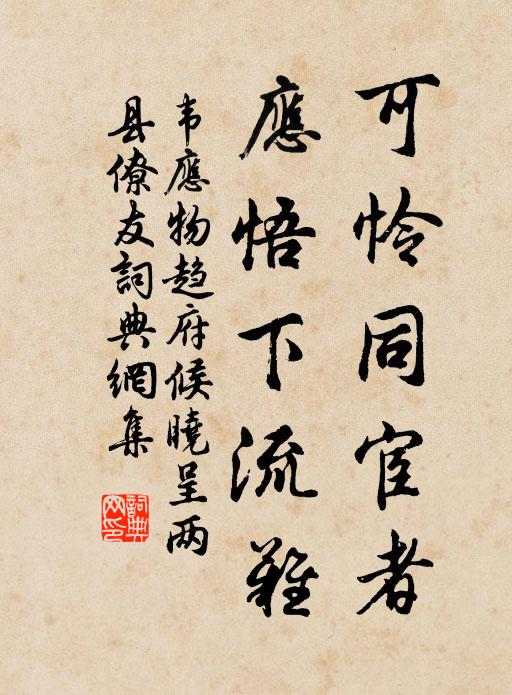 可怜同宦者
應悟下流難
韦應物趋府候曉呈两
县僚友詞典網集
詞典
网印